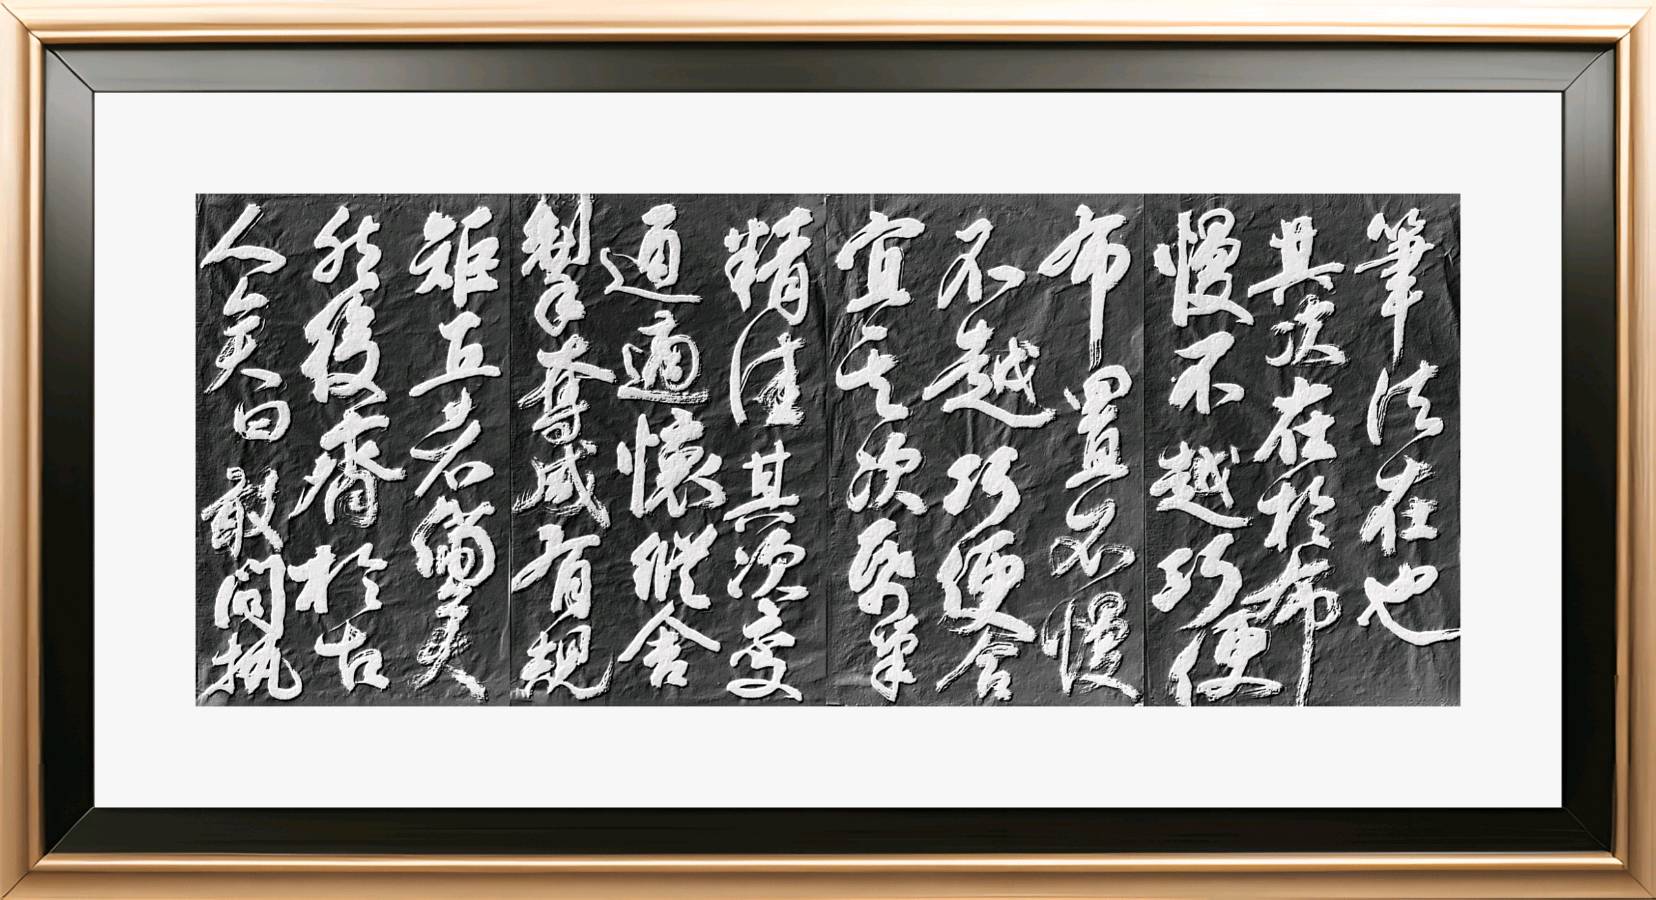 筆法在也
其次在於布
慢不越巧便
布置不慢
不越巧便合
宜其次紙筆
精佳其次变
通適懷縱舍
掣奪咸有規
矩五者備矣
然後齊於古
人矣曰敢問執